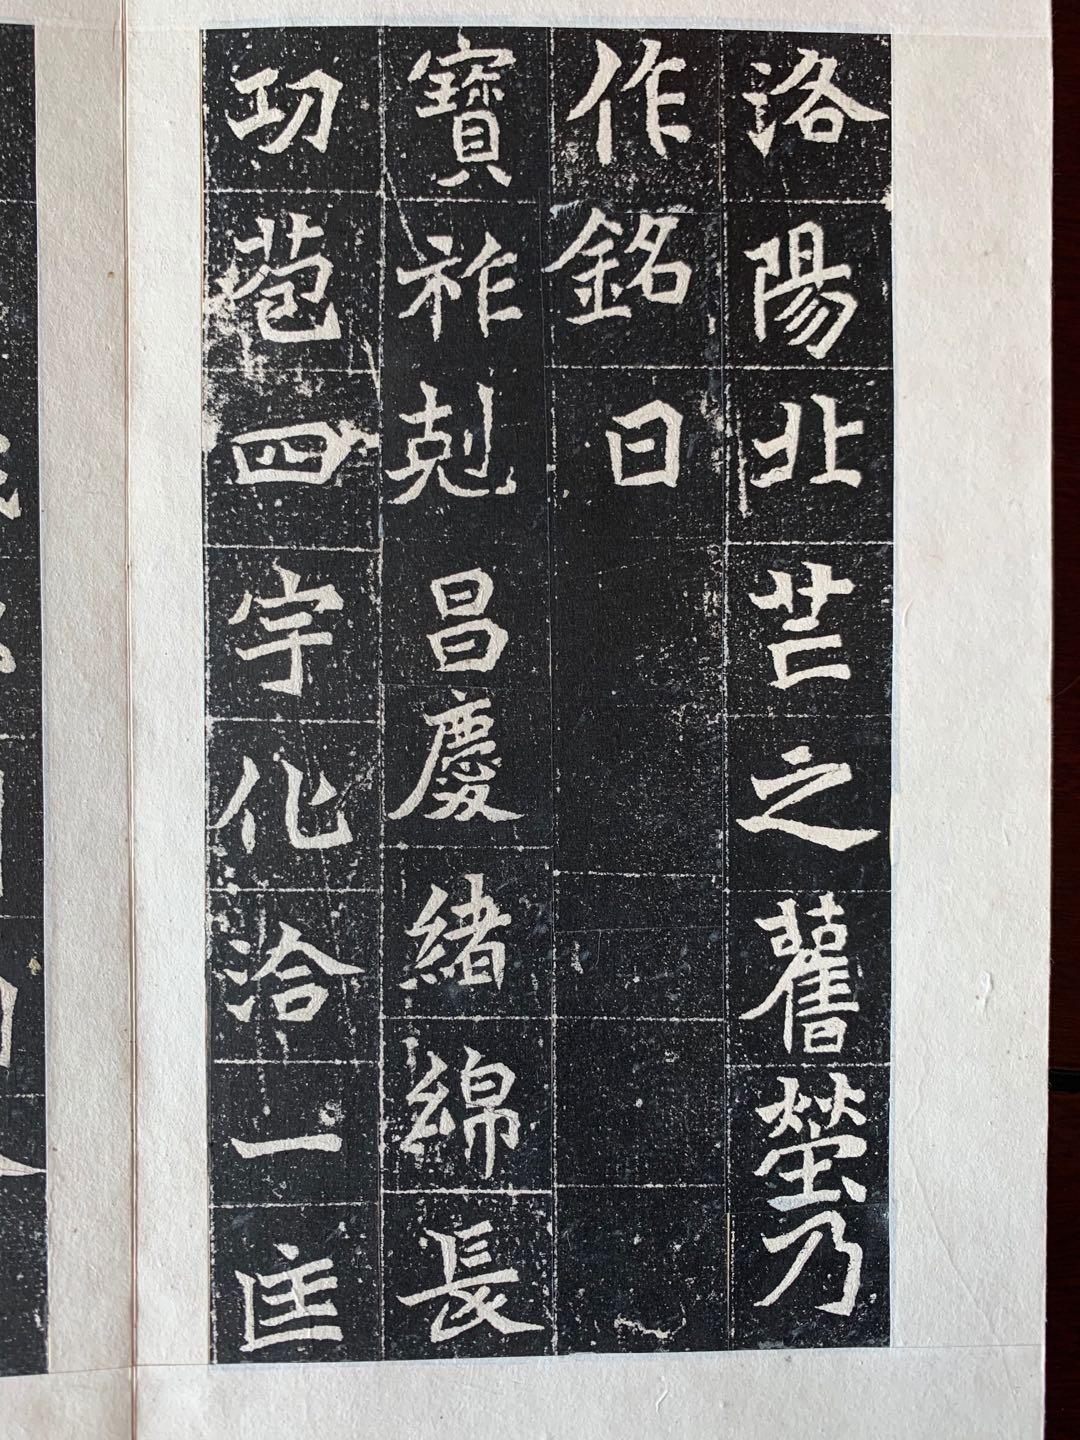 洛陽北芒之舊塋乃
作銘曰
寶祚剋昌慶緒綿長
功苞四宇化洽一匡